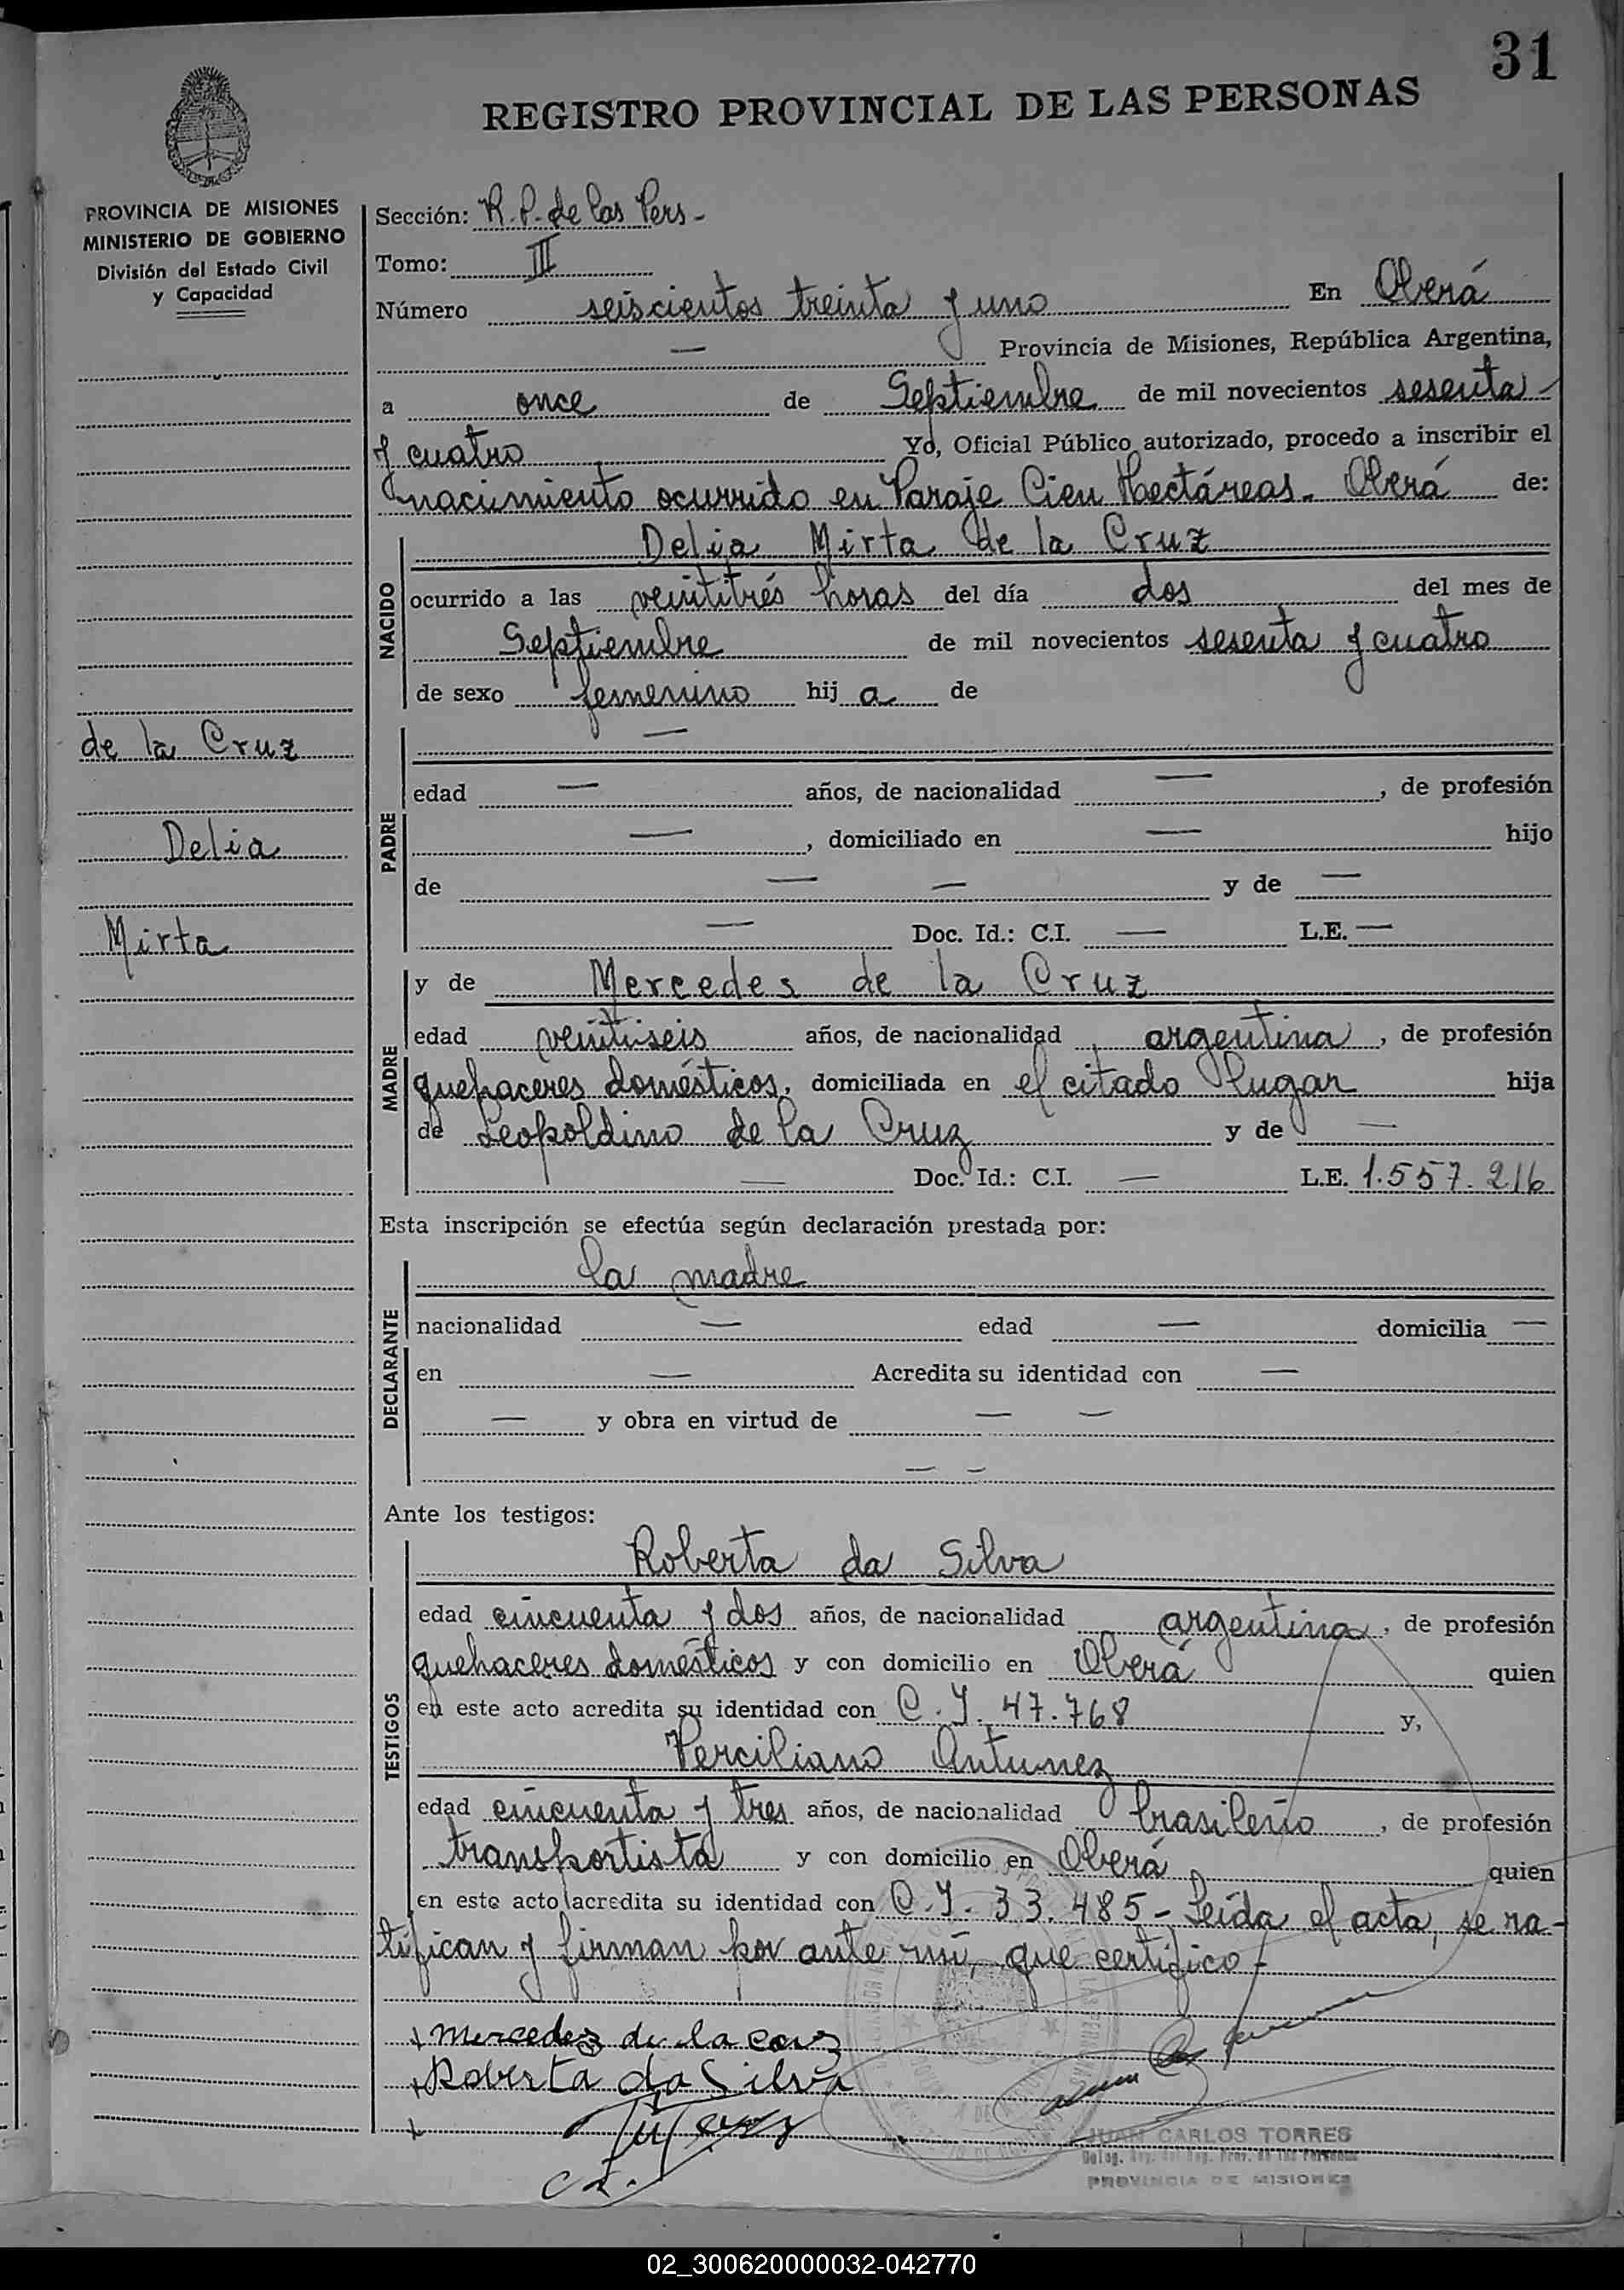 31
REGISTRO PROVINCIAL DE LAS PERSONAS
PROVINCIA DE MISIONES
MINISTERIO DE GOBIERNO
División del Estado Civil
y Capacidad
de la Cruz
Delia
Mirta
Sección: R. P. de las Pers-
Tomo: III
Número seiscientos treinta y uno En Oberá
— Provincia de Misiones, República Argentina,
a once de Septiembre de mil novecientos sesenta
y cuatro Yo, Oficial Público autorizado, procedo a inscribir el
nacimiento ocurrido en Paraje Cien Hectáreas - Oberá de:
NACIDO
Delia Mirta de la Cruz
ocurrido a las veintitrés horas del día dos del mes de
Septiembre de mil novecientos sesenta y cuatro
de sexo femenino hij a de
PADRE
—
edad — años, de nacionalidad —, de profesión
—, domiciliado en — hijo
de — — y de —
— Doc. Id.: C.I. — L.E. —
MADRE
y de Mercedes de la Cruz
edad veintiseis años, de nacionalidad argentina, de profesión
quehaceres domésticos, domiciliada en el citado lugar hija
de Leopoldino de la Cruz y de —
— Doc. Id.: C.I. — L.E. 1.557.216
Esta inscripción se efectúa según declaración prestada por:
DECLARANTE
la madre
nacionalidad — edad — domicilia —
en — Acredita su identidad con —
— y obra en virtud de — —
— —
Ante los testigos:
TESTIGOS
Roberta da Silva
edad cincuenta y dos años, de nacionalidad argentina, de profesión
quehaceres domésticos y con domicilio en Oberá quien
en este acto acredita su identidad con C. I. 47.768 y,
Perciliano Antunez
edad cincuenta y tres años, de nacionalidad brasileño, de profesión
transportista y con domicilio en Oberá quien
en este acto acredita su identidad con C. I. 33.485 - Leída el acta, se ra-
tifican y firman por ante mí, que certifico -
mercedez de la cruz
Roberta da Silva
JUAN CARLOS TORRES
PROVINCIA DE MISIONES
02_300620000032-042770